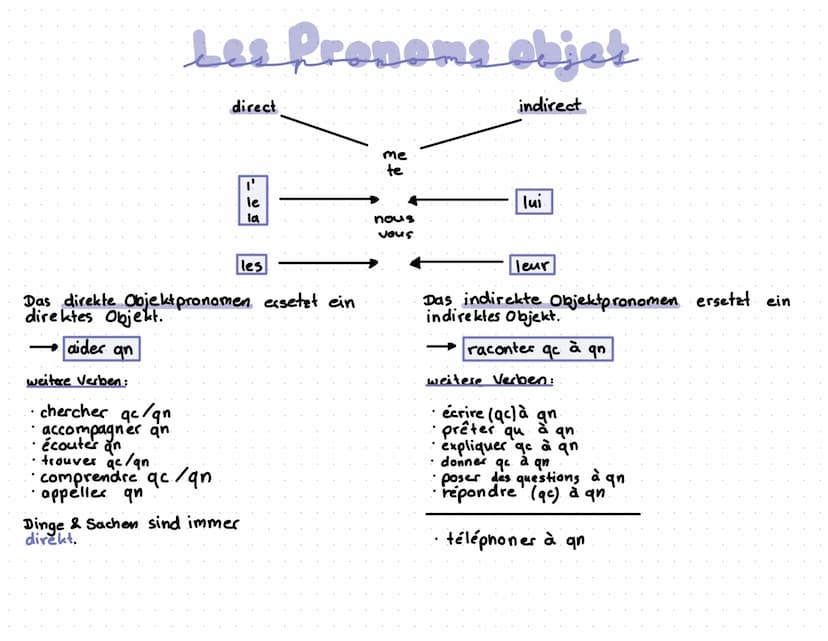 Les Pronoms objet
direct
indirect
me
te
l'
le
la
lui
nous
vous
les
leur
Das direkte Objektpronomen ersetzt ein
direktes Objekt.
→ aider qn
weitere Verben:
· chercher qc/qn
· accompagner qn
· écouter qn
· trouver qc/qn
· comprendre qc/qn
· appeller qn
Dinge & Sachen sind immer
direkt.
Das indirekte Objektpronomen ersetzt ein
indirektes Objekt.
→ raconter qc à qn
weitere Verben:
· écrire (qc) à qn
· prêter qu à qn
· expliquer qc à qn
· donner qc à qn
· poser des questions à qn
· répondre (qc) à qn
· téléphoner à qn